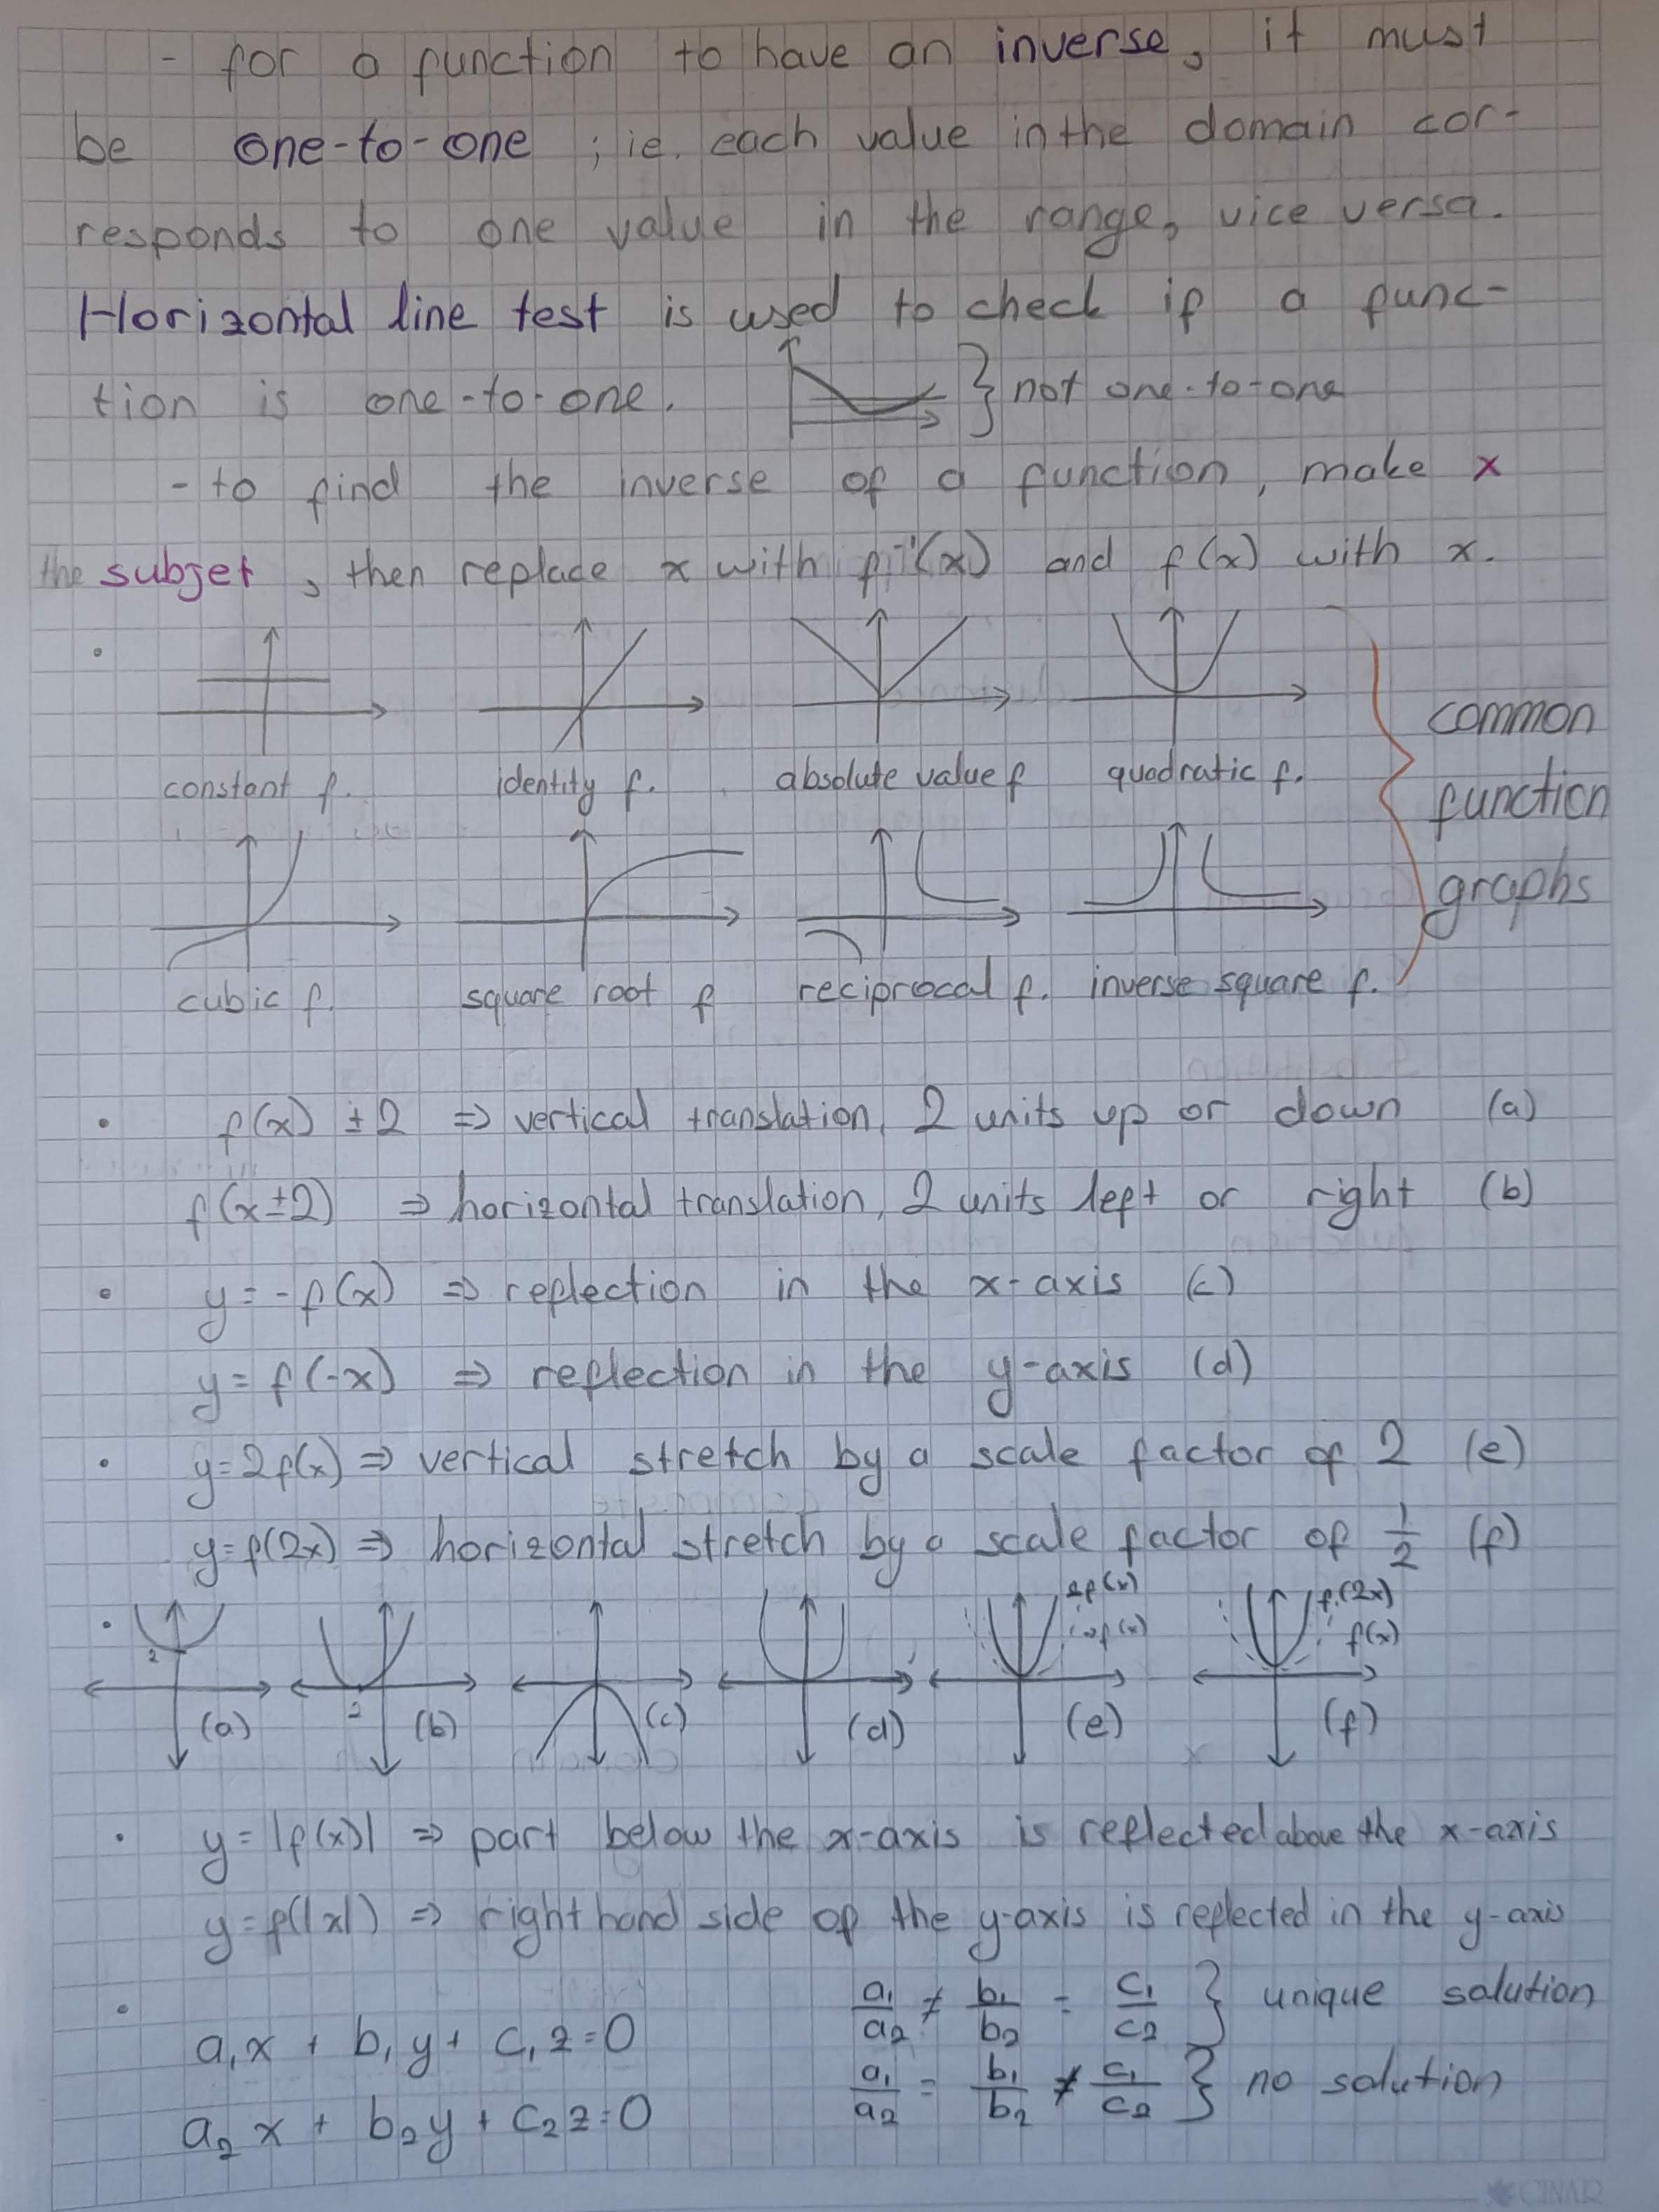 - for a function to have an inverse, it must
be one-to-one ; ie. each value in the domain cor-
responds to one value in the range, vice versa.
Horizontal line test is used to check if a func-
tion is one-to-one. } not one-to-one
- to find the inverse of a function, make x
the subjet, then replace x with f⁻¹(x) and f(x) with x.
constant f. identity f. absolute value f quadratic f.
common
function
graphs
cubic f. square root f reciprocal f. inverse square f.
• f(x) ±2 ⇒ vertical translation, 2 units up or down (a)
f(x±2) ⇒ horizontal translation, 2 units left or right (b)
• y = -f(x) ⇒ reflection in the x-axis (c)
y = f(-x) ⇒ reflection in the y-axis (d)
• y=2f(x) ⇒ vertical stretch by a scale factor of 2 (e)
y=f(2x) ⇒ horizontal stretch by a scale factor of 1/2 (f)
2f(x) f(2x)
f(x) f(x)
2
(a) (b) (c) (d) (e) (f)
• y = |f(x)| ⇒ part below the x-axis is reflected above the x-axis
y=f(|x|) ⇒ right hand side of the y-axis is reflected in the y-axis
• a₁x + b₁y + c₁z=0 a₁/a₂ ≠ b₁/b₂ = c₁/c₂ } unique solution
a₂x + b₂y + c₂z=0 a₁/a₂ = b₁/b₂ ≠ c₁/c₂ } no solution
ÇINAR